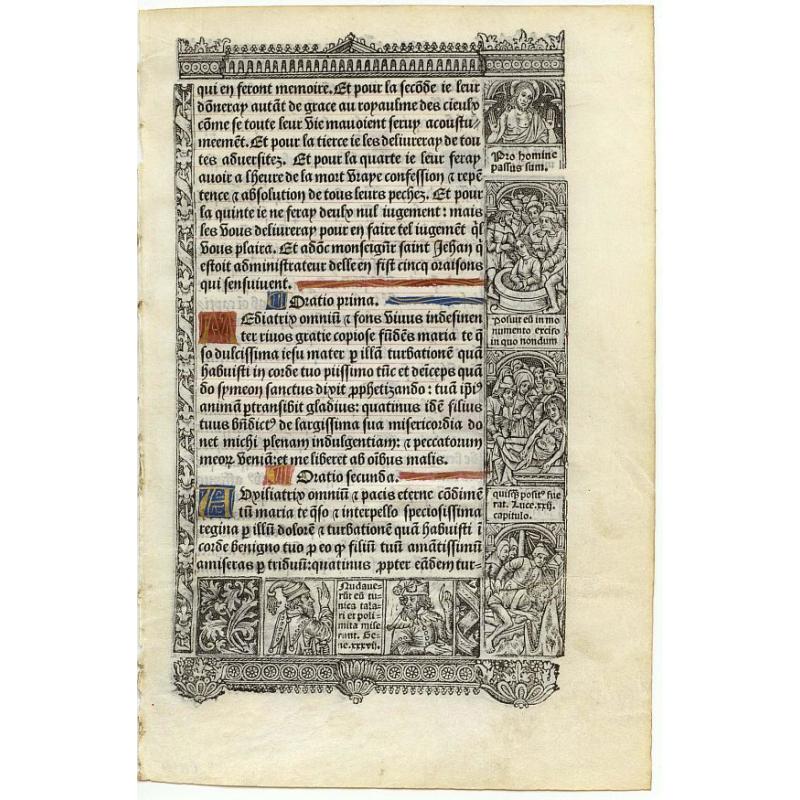 qui en feront memoire. Et pour la secōde ie leur
dōneray autāt de grace au royaulme des cieulx
cōme se toute leur vie mauoient seruy acoustu⸗
meement. Et pour la tierce ie les deliureray de tou
tes aduersitez. Et pour la quarte ie leur feray
auoir a lheure de la mort vraye confession ⁊ repē
tence ⁊ absolution de tous leurs pechez. Et pour
la quinte ie ne feray deulx nul iugement : mais
les vous deliureray pour en faire tel iugemēt q̄l
vous plaira. Et adōc monseignr̄ saint Jehan q̄
estoit administrateur delle en fist cinq oraisons
qui sensuiuent.
Oratio prima.
MEdiatrix omniū ⁊ fons viuus indefinen
ter riuos gratie copiose fūdēs maria te q̄
so dulcissima iesu mater ꝑ illā turbationē quā
habuisti in corde tuo piissimo tūc et deīceps quā
do symeon sanctus dixit ꝓphetizando : tuā ip̄iꝰ
animā ꝑtransibit gladius: quatinus idē filius
tuus bn̄dictꝰ de largissima sua misericordia do
net michi plenam indulgentiam: ⁊ peccatorum
meoꝝ veniā: et me liberet ab oībus malis.
Oratio secunda.
AUxiliatrix omniū ⁊ pacis eterne cōdimē
tū maria te q̄so ⁊ interpello speciosissima
regina ꝑ illū dolorē ⁊ turbationē quā habuisti ī
corde benigno tuo ꝑ eo ꝙ filiū tuū amātissimū
amiseras ꝑ triduū: quatinus ꝓpter eādem tur-
Pro homine
passus sum.
Posuit eū in mo
numento exciso
in quo nondum
quisꝗ̄ positꝰ fue
rat. Luce. xxij.
capitulo.
Nudaue⸗
rūt eū tu⸗
nica tala⸗
ri et poli⸗
mita mise
runt. Ge⸗
ne. xxxvij.